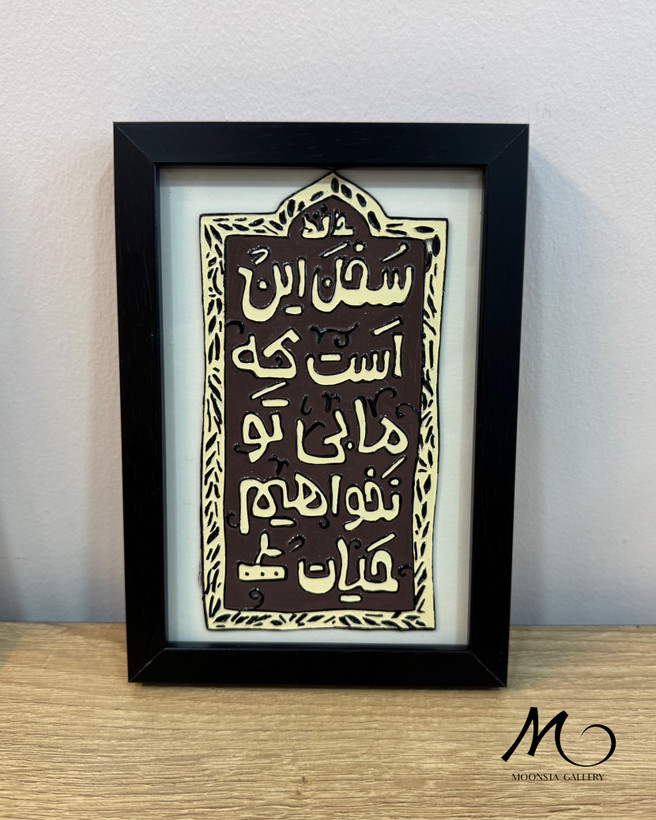 سُخَن این
اَست که
ما بی تو
نَخواهیم
حَیات
M
MOONSIA GALLERY